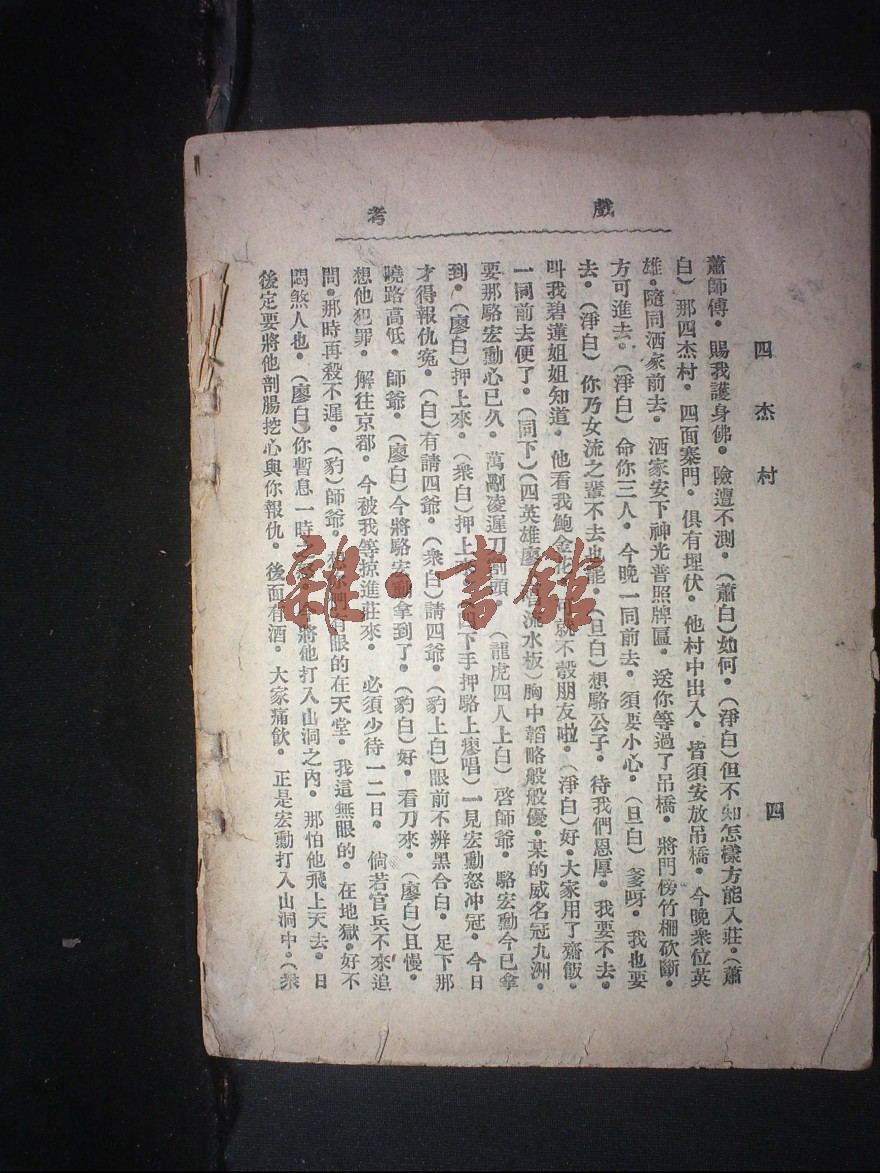 戲考
四杰村
四
蕭師傅。賜我護身佛。險遭不測。（蕭白）如何。（淨白）但不知怎樣方能入莊。（蕭
白）那四杰村。四面寨門。俱有埋伏。他村中出入。皆須安放吊橋。今晚衆位英
雄。隨同洒家前去。洒家安下神光普照牌匾。送你等過了吊橋。將門傍竹棚砍斷。
方可進去。（淨白）命你三人。今晚一同前去。須要小心。（旦白）爹呀。我也要
去。（淨白）你乃女流之輩不去也能。（旦白）想駱公子。待我們恩厚。我要不去。
叫我碧蓮姐姐知道。他看我鮑金花。可就不彀朋友啦。（淨白）好。大家用了齋飯。
一同前去便了。（同下）（四英雄廖 流水板）胸中韜略般般優。某的威名冠九洲。
要那駱宏動心已久。萬剮凌遲刀割頭。（龍虎四人上白）啓師爺。駱宏動今已拿
到。（廖白）押上來。（衆白）押上 下手押駱上廖唱）一見宏動怒冲冠。今日
才得報仇寃。（白）有請四爺。（衆白）請四爺。（豹上白）眼前不辨黑合白。足下那
曉路高低。師爺。（廖白）今將駱宏動拿到了。（豹白）好。看刀來。（廖白）且慢。
想他犯罪。解往京都。今被我等掠進莊來。必須少待一二日。倘若官兵不來追
問。那時再殺不遲。（豹）師爺。 有眼的在天堂。我這無眼的。在地獄。好不
悶煞人也。（廖白）你暫息一時之 將他打入山洞之內。那怕他飛上天去。日
後定要將他剖腸挖心與你報仇。後面有酒。大家痛飲。正是宏動打入山洞中。（衆
雜·書館